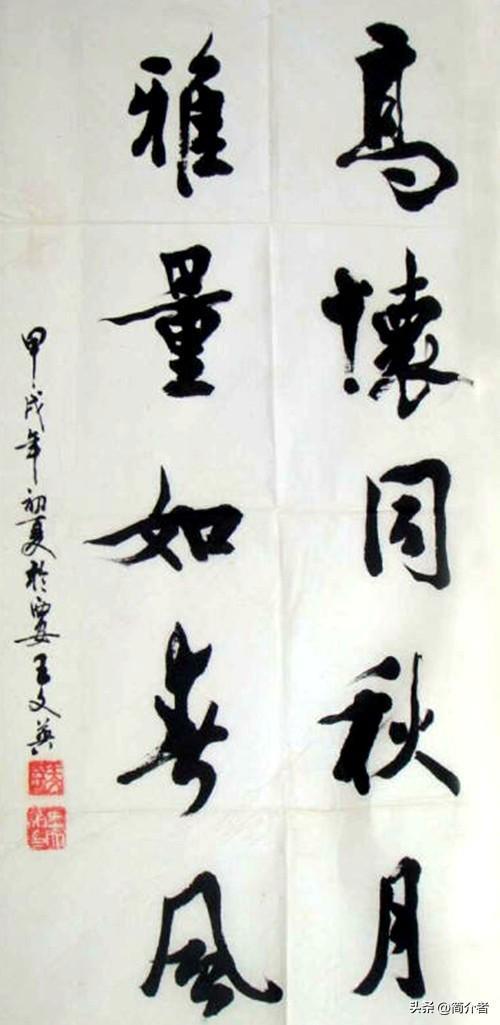 高懷同秋月
雅量如春風
甲戌年初夏於西安王文英
头条 @简介者